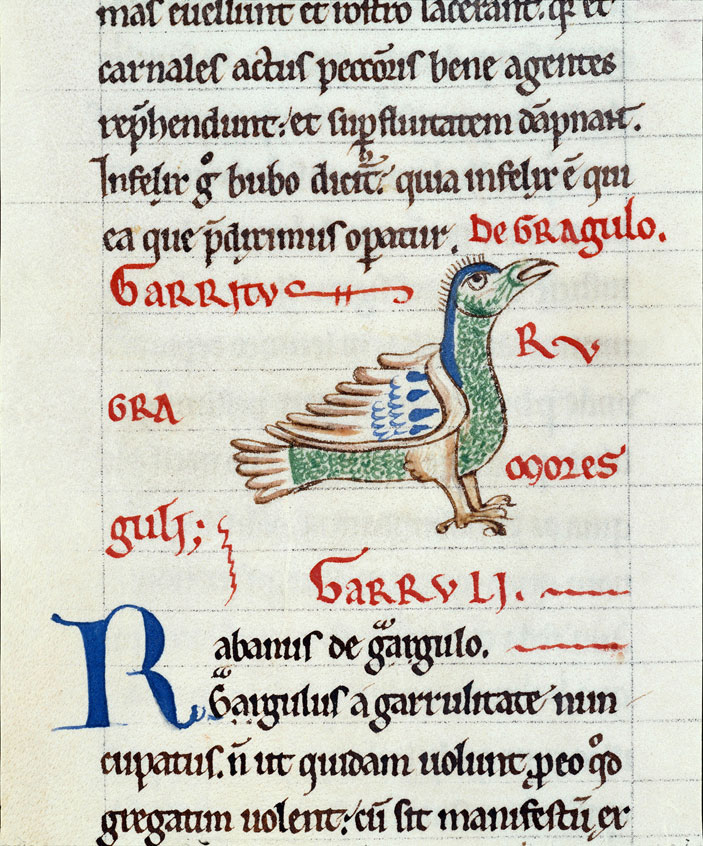 mas euellunt et rostro lacerant. qr et
carnales actus peccoris bene agentes
rep̄hendunt: et sup̄fluitatem dāpnant.
Infelix gͦ bubo dicit̄ᷣ: quia infelix ē qui
ea que p̄diximus operatur. De Gragulo.
Garritu
Ru
Gra
mores
guli;
Garruli.
Rabanus de gargulo.
Gargulus a garrulitate nun
cupatus. n̄ ut quidam uolunt, ꝓeo qͦd
gregatim uolent: cū sit manifestū, ex